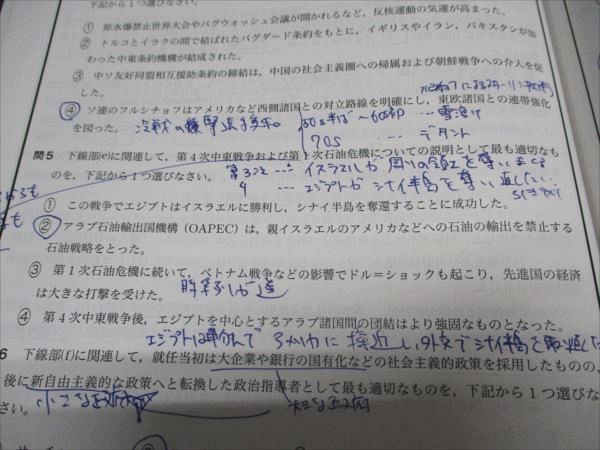 下記から1つ選びなさい。
① 原水爆禁止世界大会やパグウォッシュ会議が開かれるなど，反核運動の気運が高まった。
② トルコとイラクの間で結ばれたバグダード条約をもとに，イギリスやイラン，パキスタンが加
わった中東条約機構が結成された。
③ 中ソ友好同盟相互援助条約の締結は，中国の社会主義圏への帰属および朝鮮戦争への介入を促
した。
④ ソ連のフルシチョフはアメリカなど西側諸国との対立路線を明確にし，東欧諸国との連帯強化
を図った。
50s半ば〜60s初 … 雪溶け
70s … デタント
問5 下線部(e)に関連して，第4次中東戦争および第1次石油危機についての説明として最も適切なも
のを，下記から1つ選びなさい。
第3次 … イスラエルが周りの領土を奪いまくる
4 … エジプトが シナイ半島を奪い返したい
① この戦争でエジプトはイスラエルに勝利し，シナイ半島を奪還することに成功した。
② アラブ石油輸出国機構（OAPEC）は，親イスラエルのアメリカなどへの石油の輸出を禁止する
石油戦略をとった。
③ 第1次石油危機に続いて，ベトナム戦争などの影響でドル＝ショックも起こり，先進国の経済
は大きな打撃を受けた。
時系列が違
④ 第4次中東戦争後，エジプトを中心とするアラブ諸国間の団結はより強固なものとなった。
エジプトは単独で アメリカに接近し 外交でシナイ半島を取り返した
6 下線部(f)に関連して，就任当初は大企業や銀行の国有化などの社会主義的政策を採用したものの，
後に新自由主義的な政策へと転換した政治指導者として最も適切なものを，下記から1つ選びな
さい。
小さな政府 大きな政府